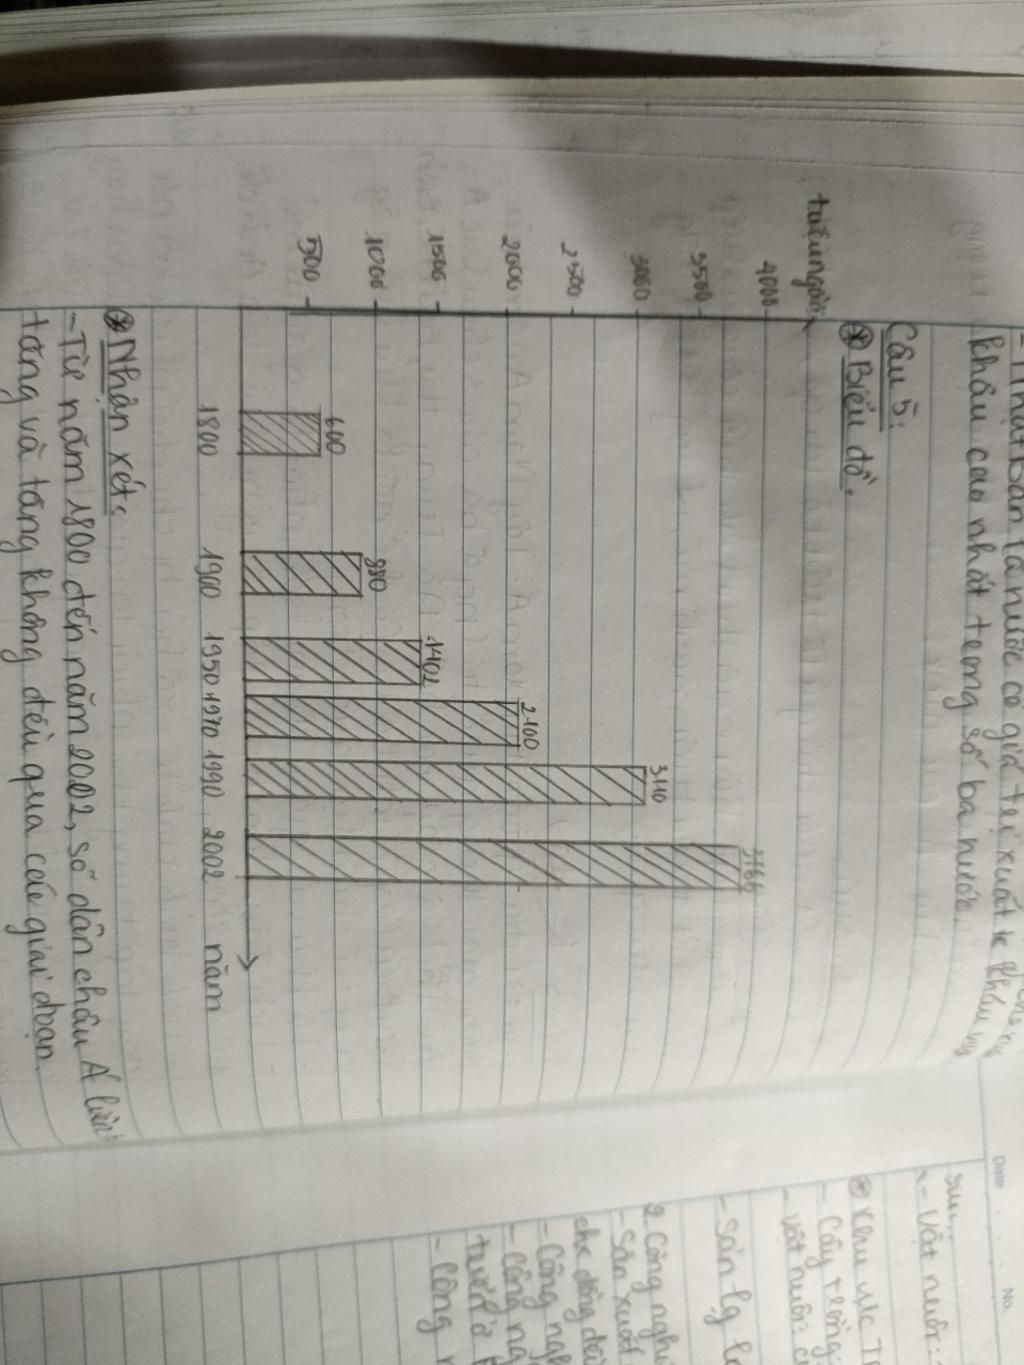 - Nhật Bản là nước có giá trị xuất
khẩu cao nhất trong số ba nước.
Câu 5:
⊛ Biểu đồ.
triệu người
4000
3500
3000
2500
2000
1500
1000
500
600
880
1402
2100
3110
3766
1800 1900 1950 1970 1990 2002 năm
⊛ Nhận xét:
- Từ năm 1800 đến năm 2002, số dân châu Á liên
tăng và tăng không đều qua các giai đoạn
Date No.
- Vật nuôi:
⊛ Khu vực T
- Cây trồng
- Vật nuôi: c
- Sản lg l
2. Công nghi
- Sản xuất
- Công ngh
- Công ng
- Công n